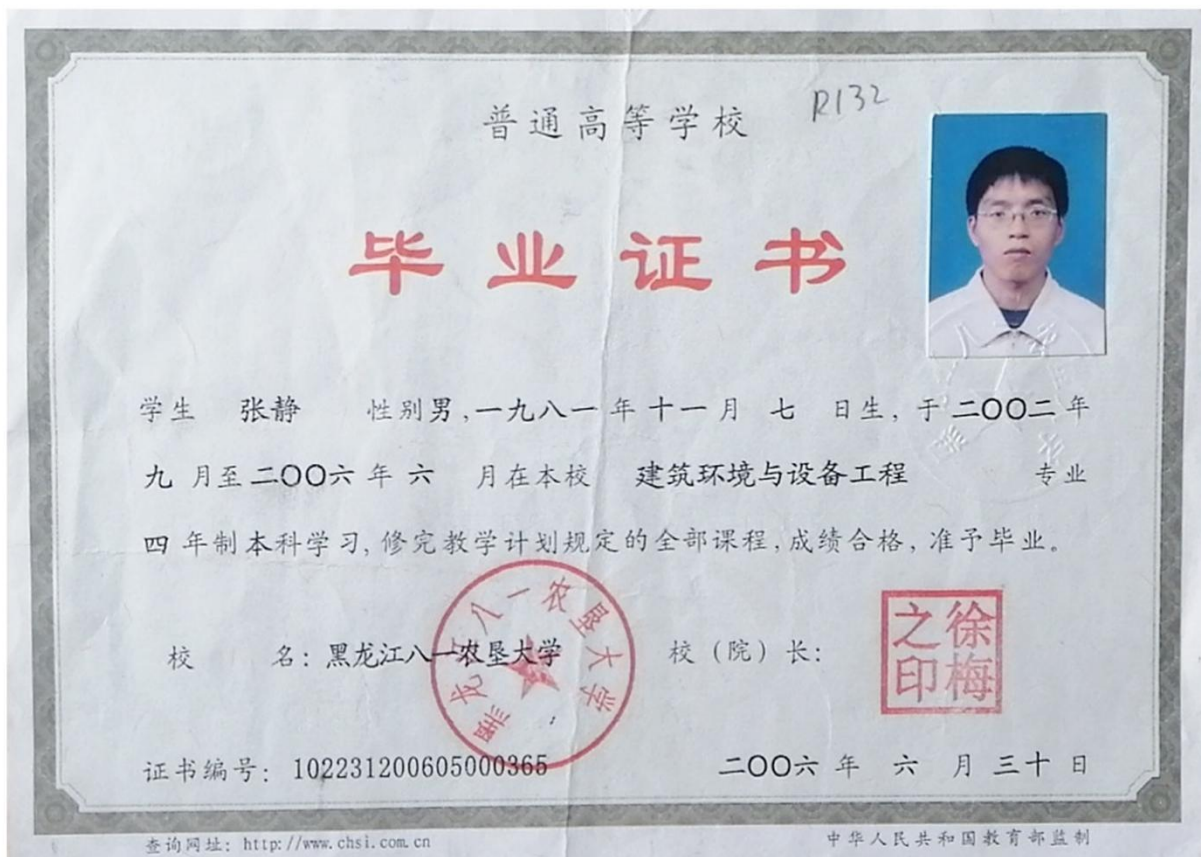 普通高等学校
R132
毕业证书
学生 张静 性别男,一九八一年十一月 七 日生,于二〇〇二年
九 月至二〇〇六年 六 月在本校 建筑环境与设备工程 专业
四 年制本科学习,修完教学计划规定的全部课程,成绩合格,准予毕业。
校 名:黑龙江八一农垦大学 校(院)长:
黑龙江八一农垦大学
徐梅之印
证书编号:102231200605000365 二〇〇六 年 六 月 三十 日
查询网址:http://www.chsi.com.cn 中华人民共和国教育部监制